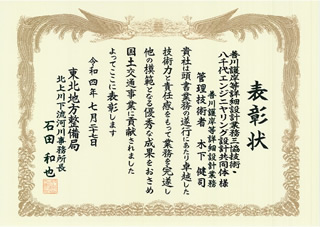 表彰状
善川護岸等詳細設計業務三協技術・
八千代エンジニヤリング設計共同体 様
善川護岸等詳細設計業務
管理技術者 木下 健司
貴社は頭書業務の遂行にあたり卓越した
技術力と責任感をもって業務を完遂し
他の模範となる優秀な成果をおさめ
国土交通事業に貢献されました
よってここに表彰します
令和四年七月二十七日
東北地方整備局
北上川下流河川事務所長
石田 和也